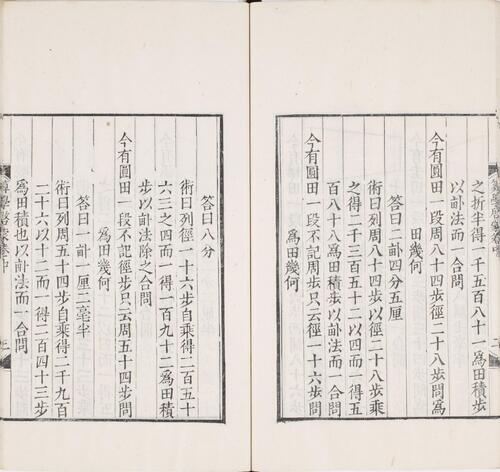 算學啓蒙卷中
之折半得一千五百一爲田積步
以畝法而一合問
今有圓田一段周八十四步徑二十八步問爲
田幾何
答曰二畝四分五厘
術曰列周八十四步以徑二十八步乘
之得二千三百五十二以四而一得五
百八十八爲田積步以畝法而一合問
今有圓田一段不記周步只云徑一十六步問
爲田幾何
答曰八分
術曰列徑一十六步自乘得二百五十
六三之四而一得一百九十二爲田積
步以畝法除之合問
今有圓田一段不記徑步只云周五十四步問
爲田幾何
答曰一畝一厘二毫半
術曰列周五十四步自乘得二千九百
一十六以十二而一得二百四十三步
爲田積也以畝法而一合問
算學啓蒙卷中